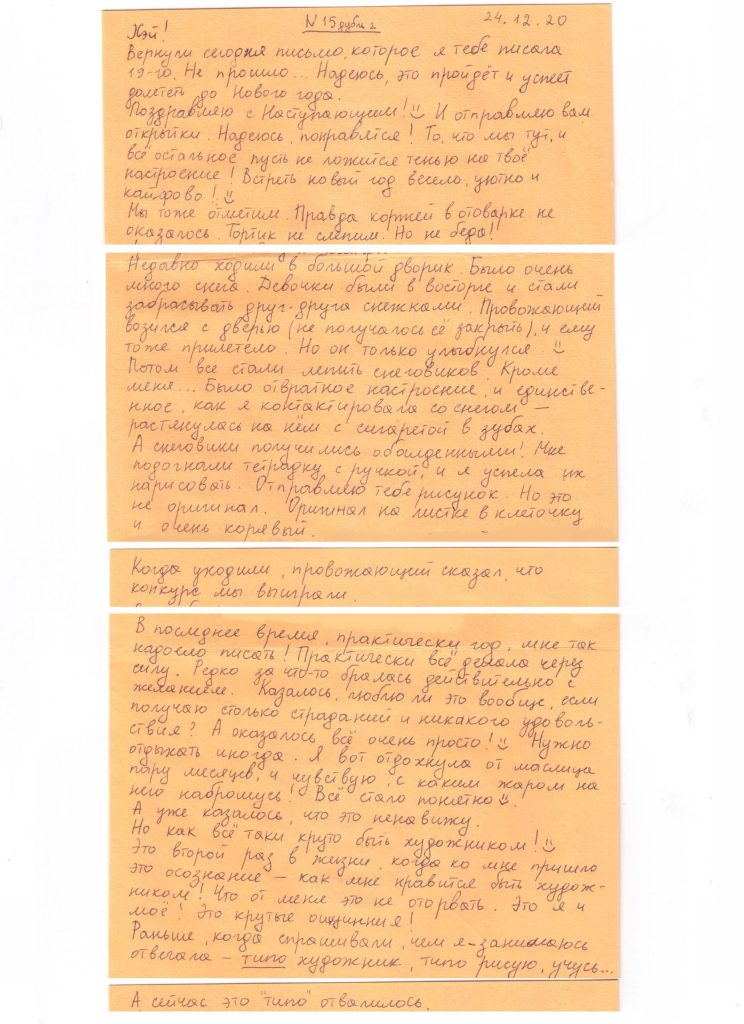 N 15 дубль 2
24.12.20
Кэй!
Вернули сегодня письмо, которое я тебе писала
19-го. Не прошло... Надеюсь, это пройдёт и успеет
долететь до Нового года.
Поздравляю с Наступающим! И отправляю вам
открытки. Надеюсь, понравятся! То, что мы тут, и
всё остальное пусть не ложится тенью на твоё
настроение! Встреть новый год весело, уютно и
кайфово!
Мы тоже отметим. Правда коржей в отоварке не
оказалось. Тортик не слепим. Но не беда!
Недавно ходили в большой дворик. Было очень
много снега. Девочки были в восторге и стали
забрасывать друг-друга снежками. Провожающий
возился с дверью (не получалось её закрыть), и ему
тоже прилетело. Но он только улыбнулся.
Потом все стали лепить снеговиков. Кроме
меня... Было отвратное настроение, и единстве-
нное, как я контактировала со снегом —
растянулась на нём с сигаретой в зубах.
А снеговики получились обалденными! Мне
подогнали тетрадку с ручкой, и я успела их
нарисовать. Отправляю тебе рисунок. Но это
не оригинал. Оригинал на листке в клеточку
и очень корявый.
Когда уходили, провожающий сказал, что
конкурс мы выиграли.
В последнее время, практически год, мне так
надоело писать! Практически всё делала через
силу. Редко за что-то бралась действительно с
желанием. Казалось, люблю ли это вообще, если
получаю столько страданий и никакого удоволь-
ствия? А оказалось всё очень просто! Нужно
отдыхать иногда. Я вот отдохнула от маслица
пару месяцев, и чувствую, с каким жаром на
него наброшусь! Всё стало понятно.
А уже казалось, что это ненавижу.
Но как всё таки круто быть художником!
Это второй раз в жизни, когда ко мне пришло
это осознание — как мне нравится быть худож-
ником! Что от меня это не оторвать. Это я и
моё! Это крутые ощущения!
Раньше, когда спрашивали, чем я занимаюсь
отвечала — типо художник, типо рисую, учусь...
А сейчас это "типо" отвалилось.